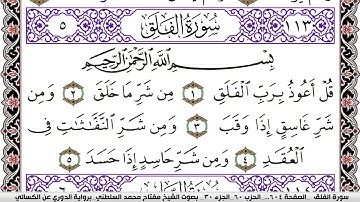 ١١٣ سُورَةُ الفَلَقِ ٥
بِسْمِ اللَّهِ الرَّحْمَٰنِ الرَّحِيمِ
قُلْ أَعُوذُ بِرَبِّ الْفَلَقِ ١ مِن شَرِّ مَا خَلَقَ ٢ وَمِن
شَرِّ غَاسِقٍ إِذَا وَقَبَ ٣ وَمِن شَرِّ النَّفَّٰثَٰتِ فِي
الْعُقَدِ ٤ وَمِن شَرِّ حَاسِدٍ إِذَا حَسَدَ ٥
سورة الفلق .. الصفحة ٦٠٤ .. الحزب ٦٠ الجزء ٣٠ .. بصوت الشيخ مفتاح محمد السلطني .برواية الدوري عن الكسائي